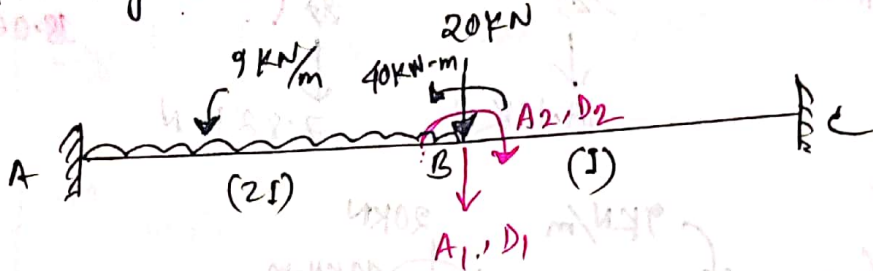 20KN
9 KN/m
40KN-m
A2, D2
A
B
C
(2I)
(I)
A1, D1